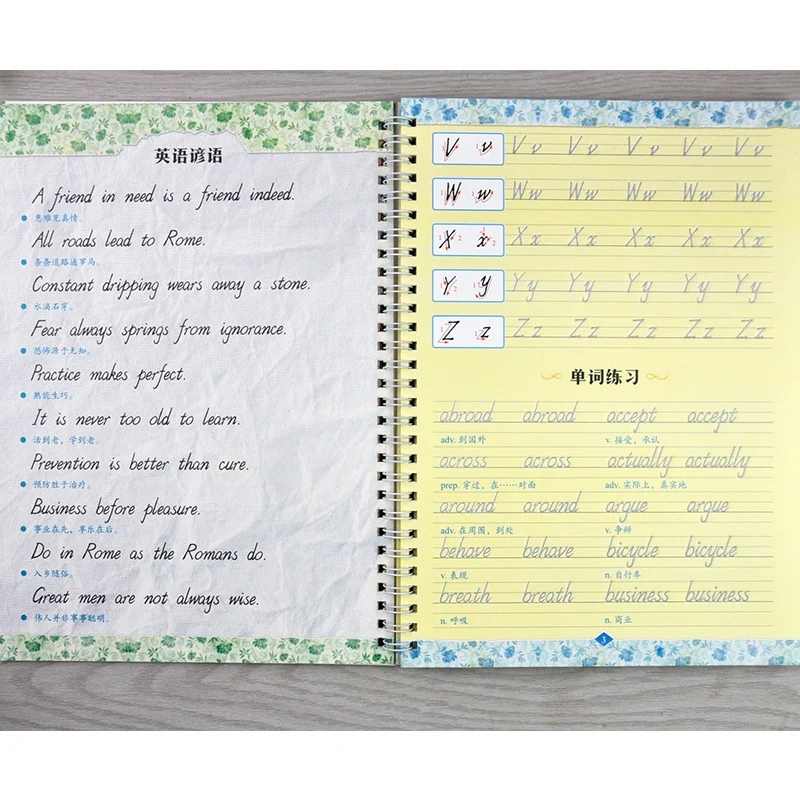 英语谚语
A friend in need is a friend indeed.
患难见真情。
All roads lead to Rome.
条条道路通罗马。
Constant dripping wears away a stone.
水滴石穿。
Fear always springs from ignorance.
恐怖源于无知。
Practice makes perfect.
熟能生巧。
It is never too old to learn.
活到老，学到老。
Prevention is better than cure.
预防胜于治疗。
Business before pleasure.
事业在先，享乐在后。
Do in Rome as the Romans do.
入乡随俗。
Great men are not always wise.
伟人并非事事聪明。
V v V v V v V v V v V v
W w W w W w W w W w W w
X x X x X x X x X x X x
Y y Y y Y y Y y Y y Y y
Z z Z z Z z Z z Z z Z z
单词练习
abroad abroad accept accept
adv. 到国外 v. 接受，承认
across across actually actually
prep. 穿过，在……对面 adv. 实际上，真实地
around around argue argue
adv. 在周围，到处 v. 争辩
behave behave bicycle bicycle
v. 表现 n. 自行车
breath breath business business
n. 呼吸 n. 商业
3